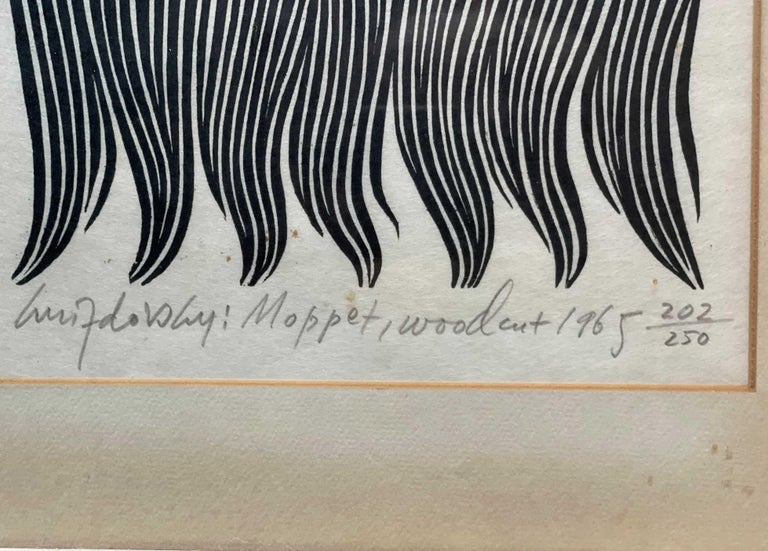 Hnizdovsky: Moppet, woodcut 1965 202/250